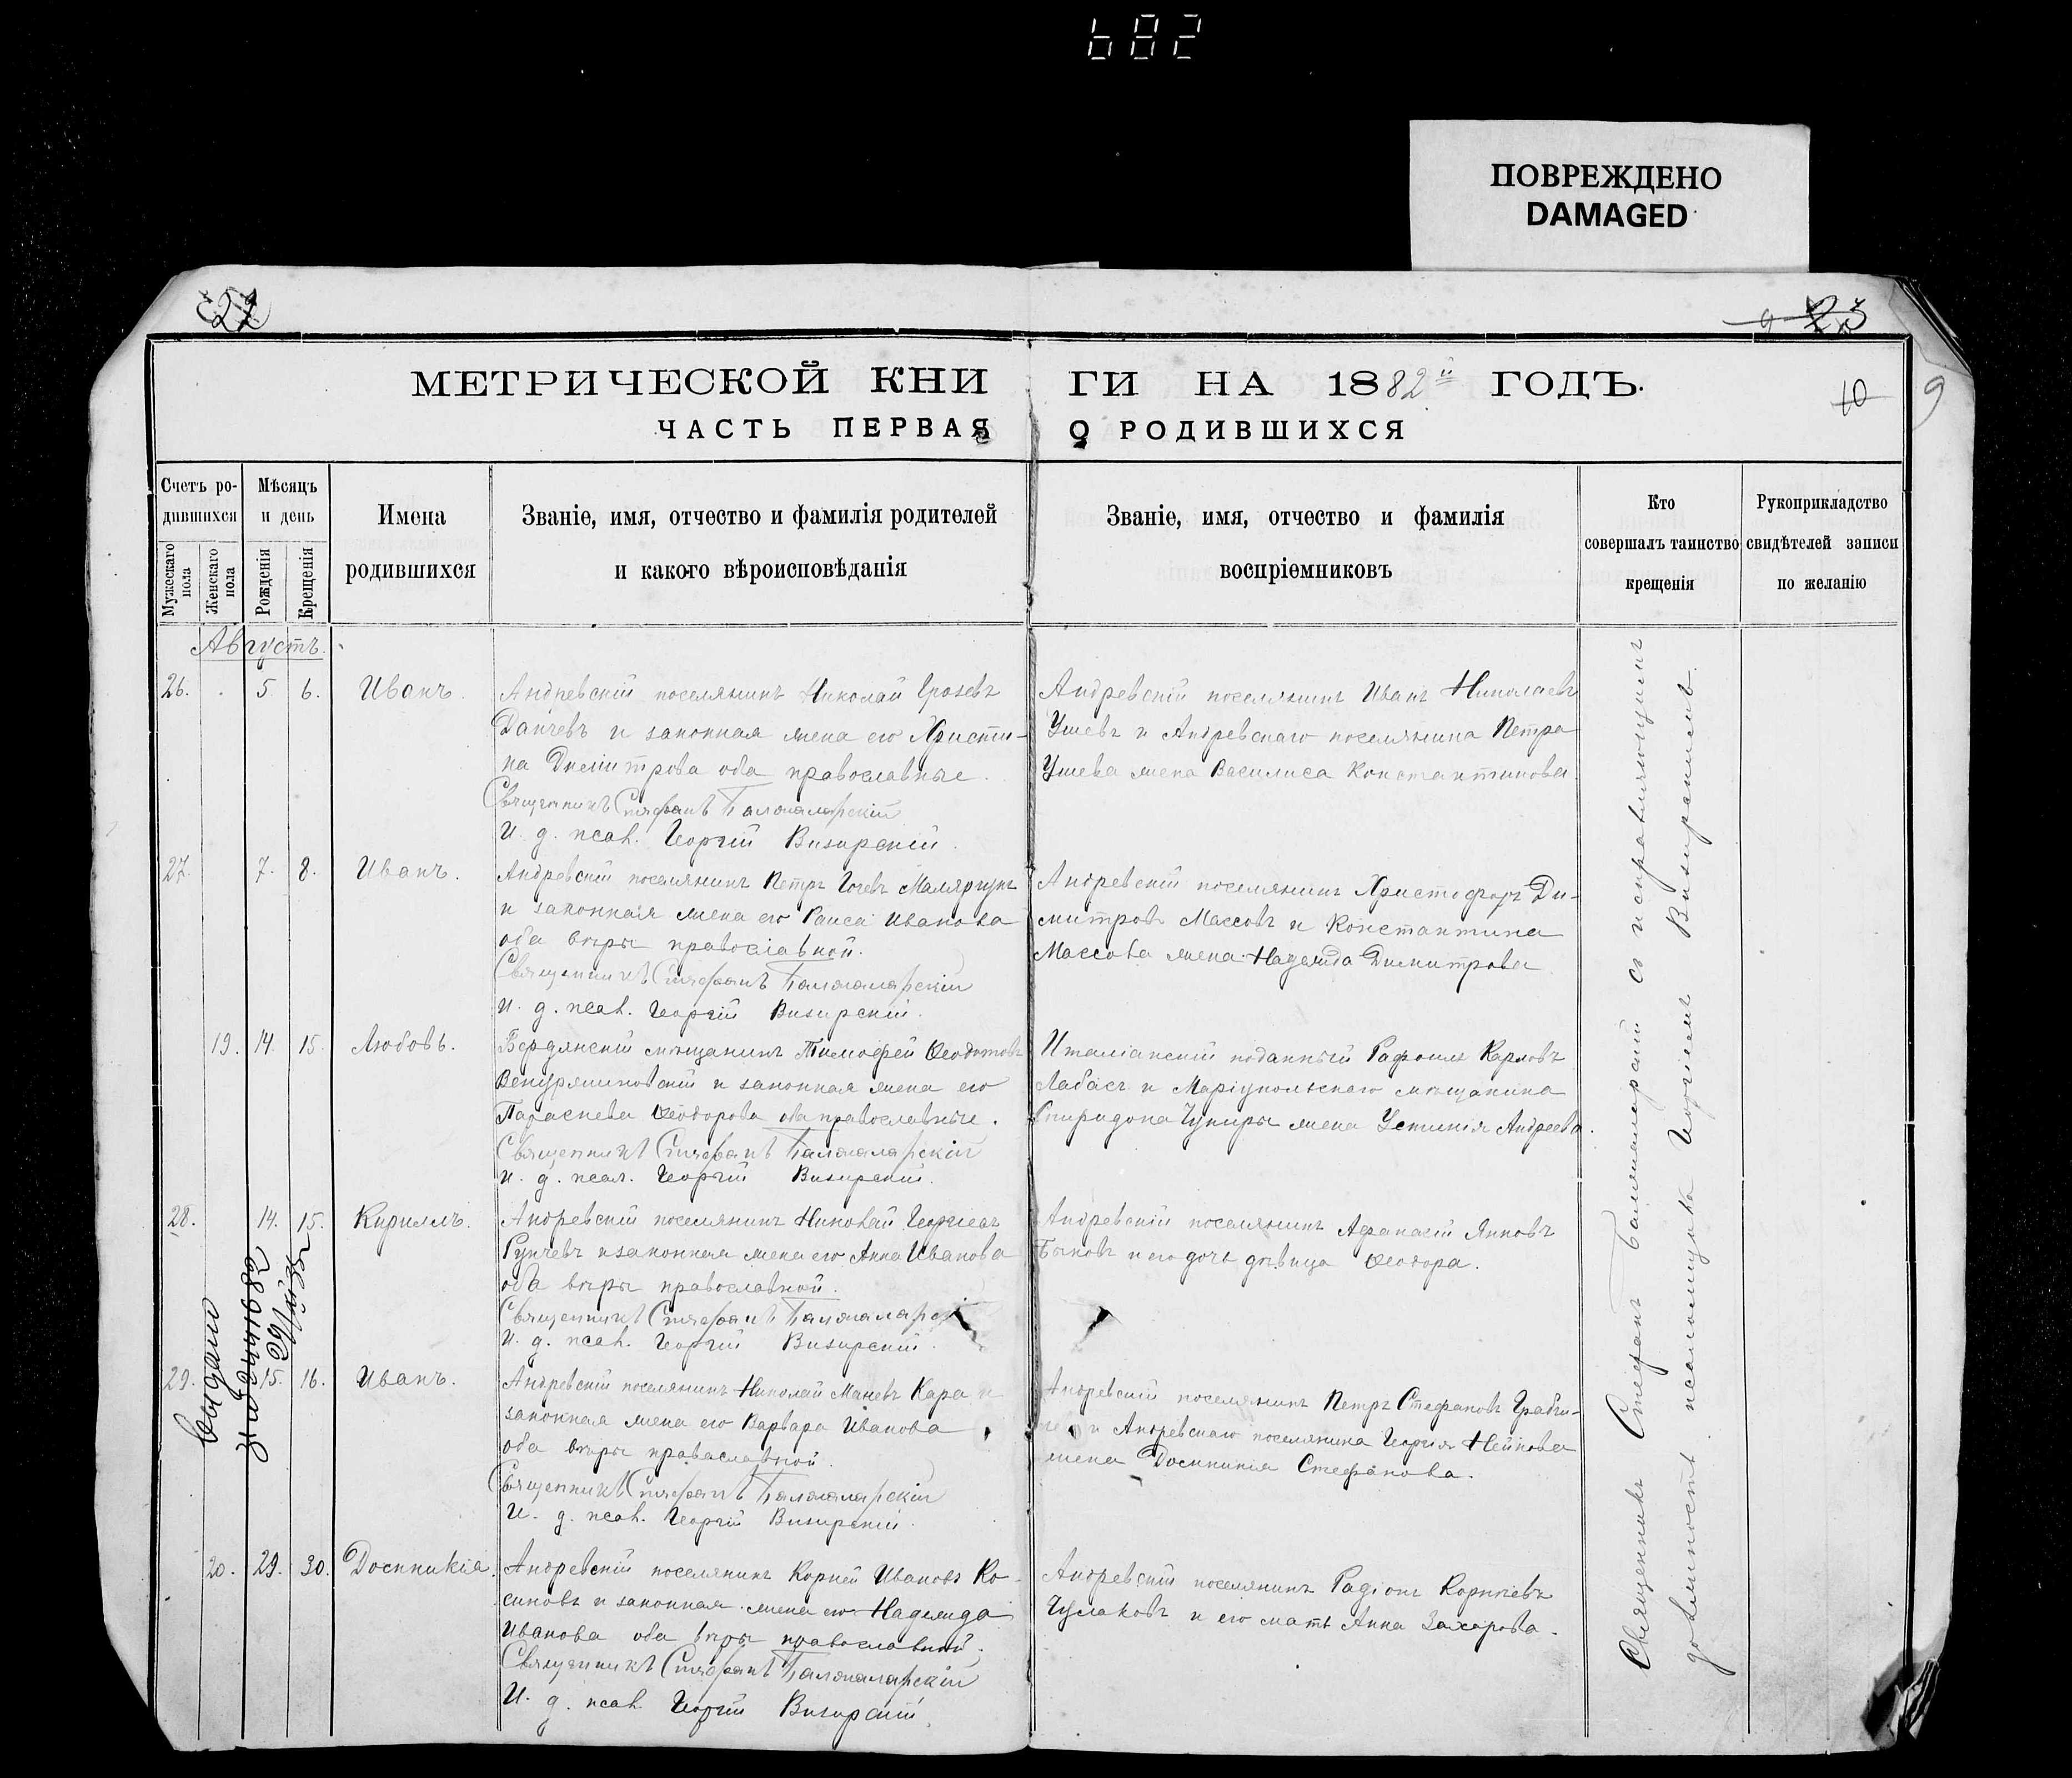 682
ПОВРЕЖДЕНО
DAMAGED
МЕТРИЧЕСКОЙ КНИГИ НА 1882й ГОДЪ.
ЧАСТЬ ПЕРВАЯ О РОДИВШИХСЯ
10
9
Счетъ родившихся
Мужескаго пола
Женскаго пола
Мѣсяцъ и день
Рожденія
Крещенія
Имена родившихся
Званіе, имя, отчество и фамилія родителей
и какого вѣроисповѣданія
Званіе, имя, отчество и фамилія
воспріемниковъ
Кто
совершалъ таинство
крещенія
Рукоприкладство
свидѣтелей записи
по желанію
Августъ.
26. 5. 6. Иванъ.
Андревскій поселянинъ Николай Грозевъ
Дайчевъ и законная жена его Христи-
на Димитрова оба православные.
Священникъ Стефанъ Балжаларскій
И. д. псал. Георгій Визирскій.
Андревскій поселянинъ Иванъ Николаевъ
Ушевъ и Андревскаго поселянина Петра
Ушева жена Василиса Константинова.
27. 7. 8. Иванъ.
Андревскій поселянинъ Петръ Гочевъ
и законная жена его Раиса Иванова
оба вѣры православной.
Священникъ Стефанъ Балжаларскій
И. д. псал. Георгій Визирскій.
Андревскій поселянинъ Христофоръ Ди-
митровъ Массовъ и Константина
Массова жена Надежда Димитрова
19. 14. 15. Любовь.
Бердянскій мѣщанинъ Тимофей Ѳеодотовъ
и законная жена его
Параскева Ѳеодорова оба православные.
Священникъ Стефанъ Балжаларскій
И. д. псал. Георгій Визирскій.
Италіанскій подданный Рафаилъ Карловъ
и Маріупольскаго мѣщанина
Спиридона жена Устинія Андреева.
28. 14. 15. Кириллъ.
Андревскій поселянинъ Николай Георгіевъ
Рунчевъ и законная жена его Анна Иванова
оба вѣры православной.
Священникъ Стефанъ Балжаларскій
И. д. псал. Георгій Визирскій.
Андревскій поселянинъ Афанасій Янковъ
Быковъ и его дочь дѣвица Ѳеодора.
выдано
29. 15. 16. Иванъ.
Андревскій поселянинъ Николай Маневъ Кара и
законная жена его Варвара Иванова
оба вѣры православной.
Священникъ Стефанъ Балжаларскій
И. д. псал. Георгій Визирскій.
Андревскій поселянинъ Петръ Стефановъ
и Андревскаго поселянина Георгія Нейкова
жена Домникія Стефанова.
20. 29. 30. Домникія.
Андревскій поселянинъ Корней Ивановъ Ко-
синовъ и законная жена его Надежда
Иванова оба вѣры православной.
Священникъ Стефанъ Балжаларскій
И. д. псал. Георгій Визирскій.
Андревскій поселянинъ Радіонъ Корнѣевъ
Чумаковъ и его мать Анна Захарова.
Священникъ Стефанъ Балжаларскій съ исправляющимъ
должность псаломщика Георгіемъ Визирскимъ.